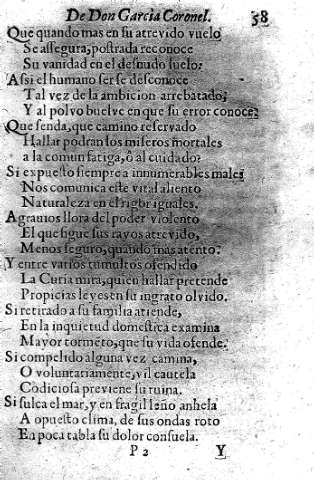 De Don Garcia Coronel. 58
Que quando mas en su atrevido vuelo
Se assegura, postrada reconoce
Su vanidad en el desnudo suelo?
Assi el humano ser se desconoce
Tal vez de la ambicion arrebatado,
Y al polvo buelve en que su error conoce?
Que senda, que camino reservado
Hallar podran los miseros mortales
a la comun fatiga, ô al cuidado?
Si expuesto siempre a innumerables males
Nos comunica este vital aliento
Naturaleza en el rigor iguales.
Agravios llora del poder violento
El que sigue sus rayos atrevido,
Menos seguro, quando mas atento.
Y entre varios tumultos ofendido
La Curia mira, quien hallar pretende
Propicias leyes en su ingrato olvido.
Si retirado a su familia atiende,
En la inquietud domestica examina
Mayor tormẽto, que su vida ofende.
Si compelido alguna vez camina,
O voluntariamente, vil cautela
Codiciosa previene su ruina.
Si sulca el mar, y en fragil leño anhela
A opuesto clima, de sus ondas roto
En poca tabla su dolor consuela.
P 2 Y